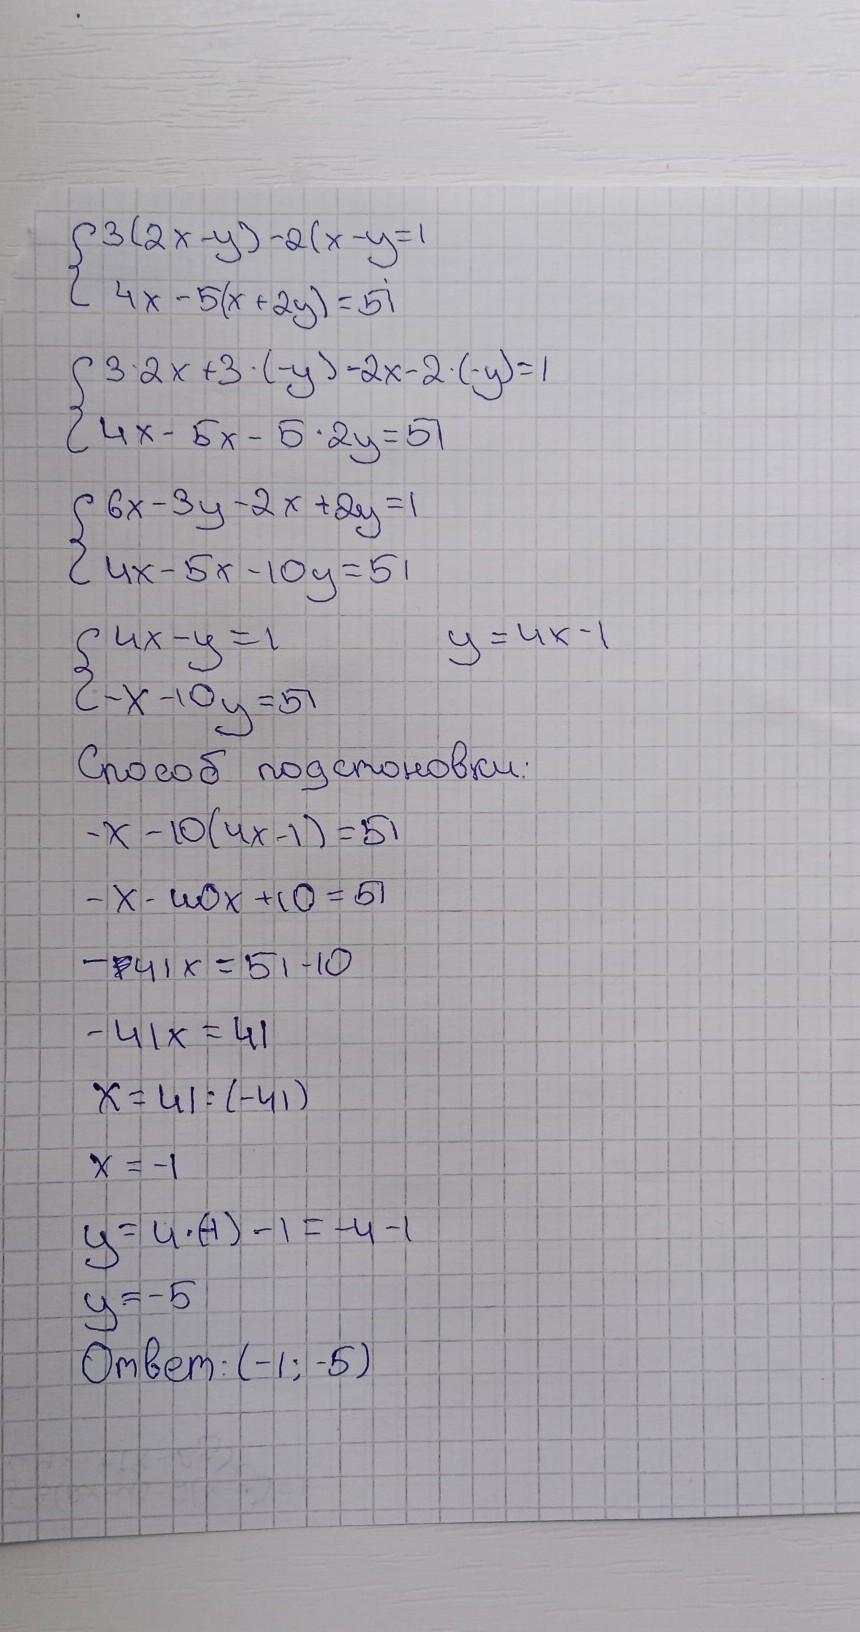 3(2x-y)-2(x-y=1
4x-5(x+2y)=51
3·2x+3·(-y)-2x-2·(-y)=1
4x-5x-5·2y=51
6x-3y-2x+2y=1
4x-5x-10y=51
4x-y=1 y=4x-1
-x-10y=51
Способ подстоновки:
-x-10(4x-1)=51
-x-40x+10=51
-41x=51-10
-41x=41
x=41:(-41)
x=-1
y=4·(-1)-1=-4-1
y=-5
Ответ:(-1;-5)